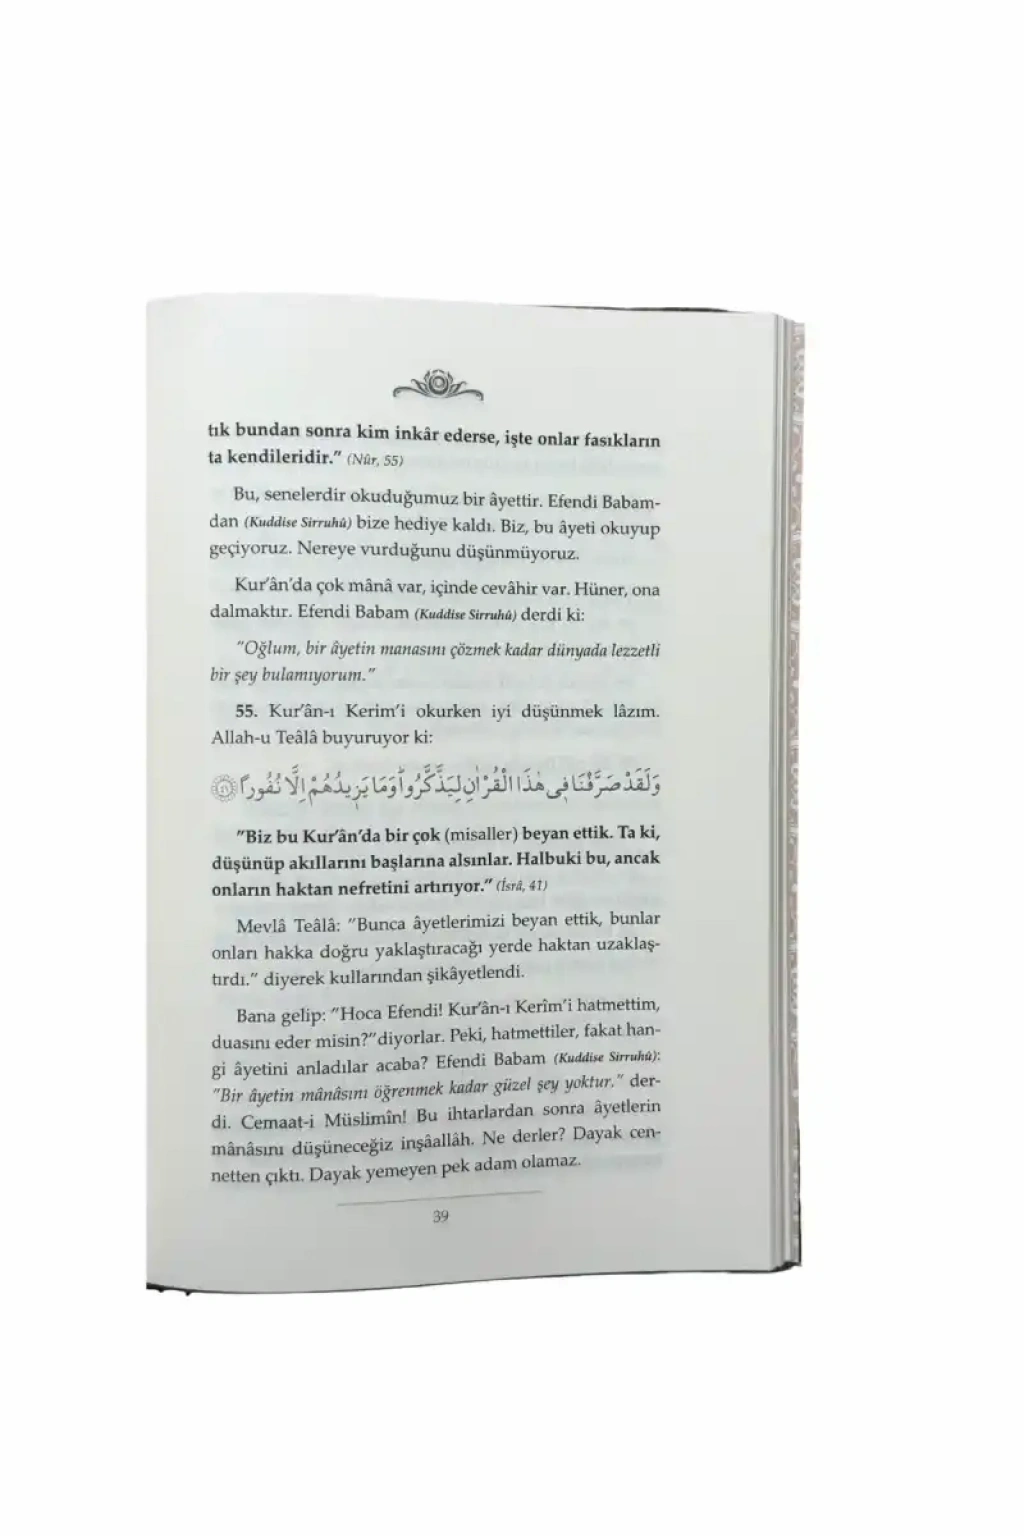 tık bundan sonra kim inkâr ederse, işte onlar fasıkların
ta kendileridir." (Nûr, 55)
Bu, senelerdir okuduğumuz bir âyettir. Efendi Babam-
dan (Kuddise Sirruhû) bize hediye kaldı. Biz, bu âyeti okuyup
geçiyoruz. Nereye vurduğunu düşünmüyoruz.
Kur'ân'da çok mânâ var, içinde cevâhir var. Hüner, ona
dalmaktır. Efendi Babam (Kuddise Sirruhû) derdi ki:
"Oğlum, bir âyetin manasını çözmek kadar dünyada lezzetli
bir şey bulamıyorum."
55. Kur'ân-ı Kerim'i okurken iyi düşünmek lâzım.
Allah-u Teâlâ buyuruyor ki:
وَلَقَدْ صَرَّفْنَا فِي هٰذَا الْقُرْاٰنِ لِيَذَّكَّرُواۜ وَمَا يَزِيدُهُمْ اِلَّا نُفُورًا ﴿٤١﴾
"Biz bu Kur'ân'da bir çok (misaller) beyan ettik. Ta ki,
düşünüp akıllarını başlarına alsınlar. Halbuki bu, ancak
onların haktan nefretini artırıyor." (İsrâ, 41)
Mevlâ Teâlâ: "Bunca âyetlerimizi beyan ettik, bunlar
onları hakka doğru yaklaştıracağı yerde haktan uzaklaş-
tırdı." diyerek kullarından şikâyetlendi.
Bana gelip: "Hoca Efendi! Kur'ân-ı Kerîm'i hatmettim,
duasını eder misin?"diyorlar. Peki, hatmettiler, fakat han-
gi âyetini anladılar acaba? Efendi Babam (Kuddise Sirruhû):
"Bir âyetin mânâsını öğrenmek kadar güzel şey yoktur." der-
di. Cemaat-i Müslimîn! Bu ihtarlardan sonra âyetlerin
mânâsını düşüneceğiz inşâallâh. Ne derler? Dayak cen-
netten çıktı. Dayak yemeyen pek adam olamaz.
39